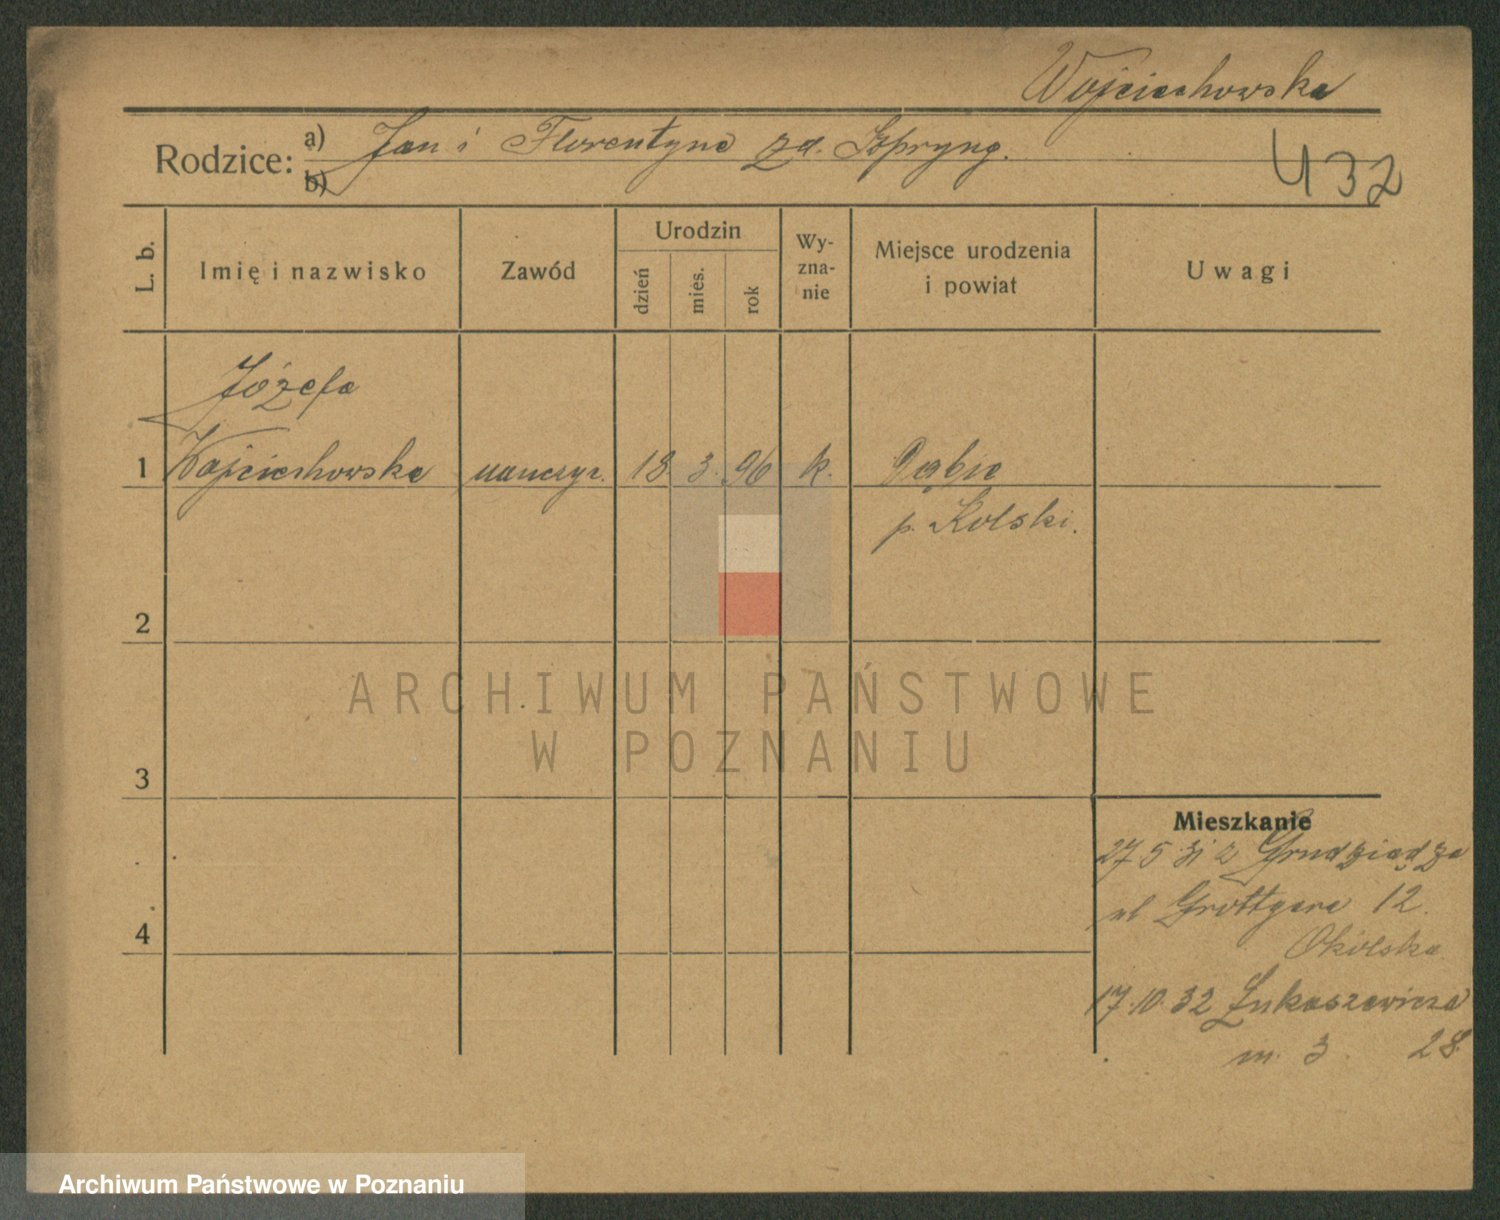 Wojciechowska
Rodzice: a) Jan i Florentyna zd. Szpryng.
b)
432
L. b.
Imię i nazwisko
Zawód
Urodzin
dzień
mies.
rok
Wy-
zna-
nie
Miejsce urodzenia
i powiat
Uwagi
Józefa
1 Wojciechowska nauczyc. 18 3. 96 k. Dąbie
p. Kolski.
2
3
4
Mieszkanie
27 5 31 z Grudziądza
ul. Grottgera 12.
Okólska
17.10.32 Łukaszewicza
m. 3. 28.
ARCHIWUM PAŃSTWOWE
W POZNANIU
Archiwum Państwowe w Poznaniu